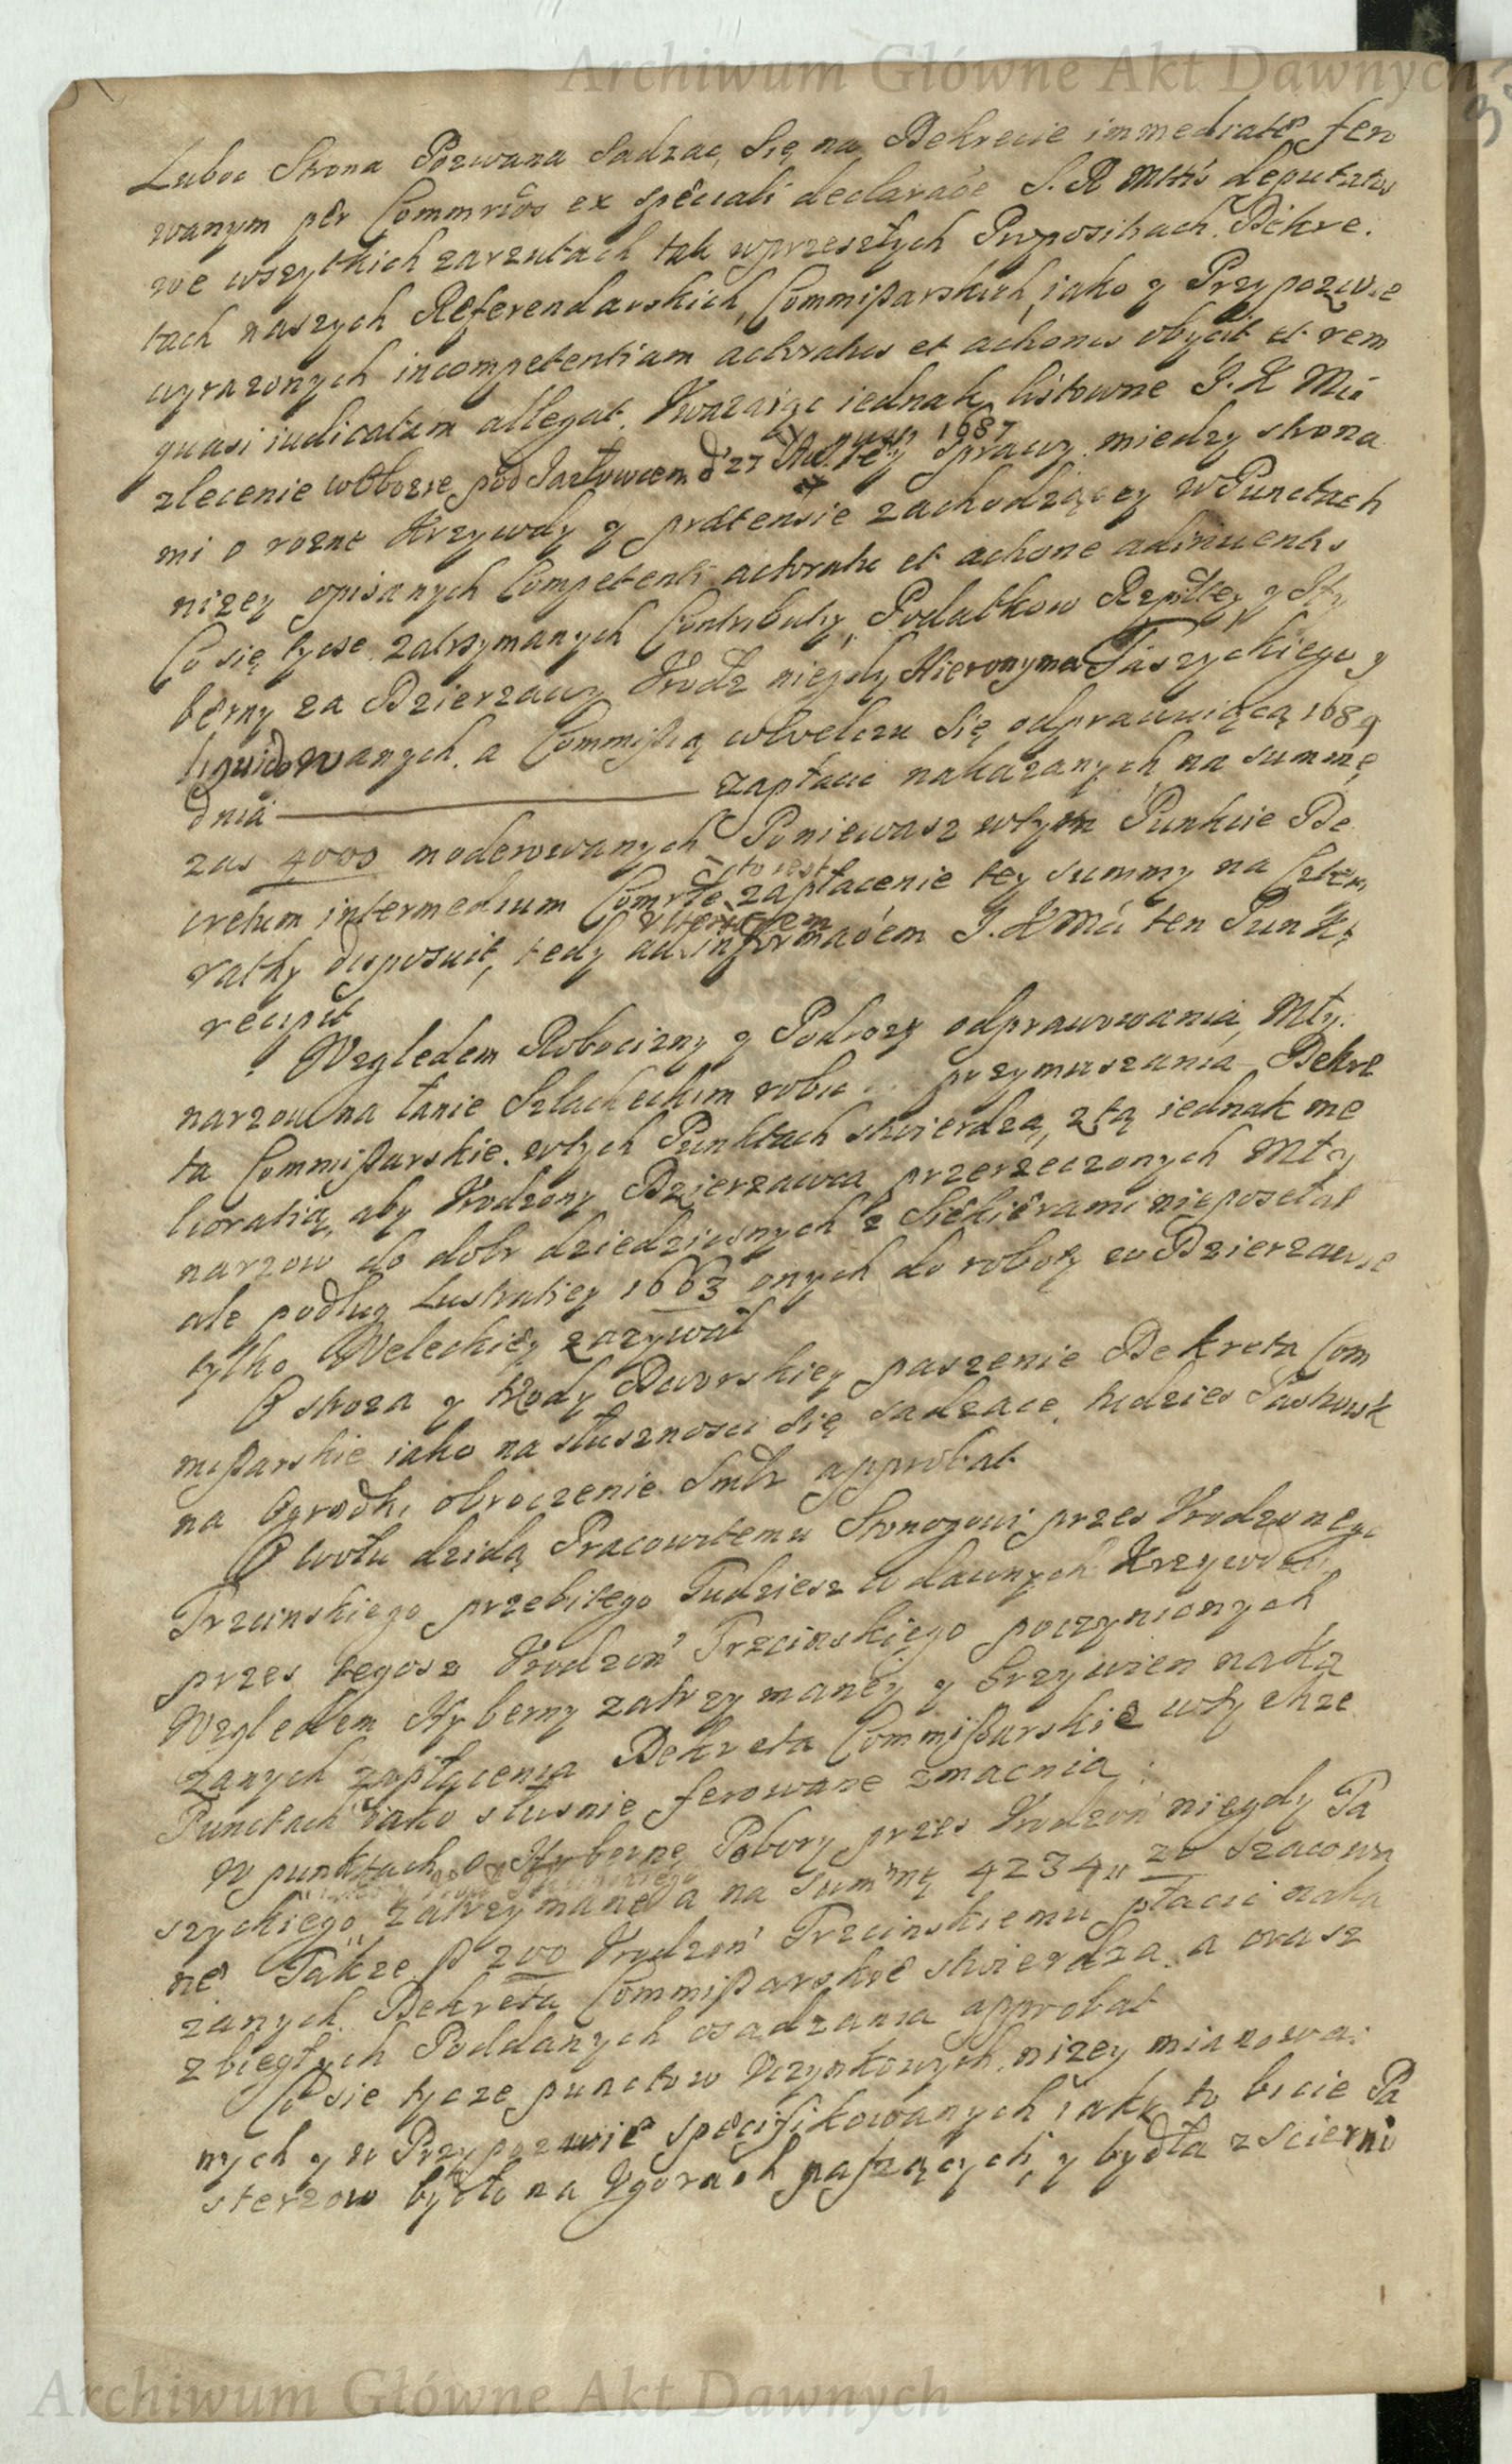 Archiwum Główne Akt Dawnych
Luboc Strona Pozwana Sadzac Się na Dekrecie immediate fero
wanym per Commrios ex speciali declaraoe S. R Mttis deputatos
we wszytkich zarzutach tak wprzeszłych Propositiach Dekre.
tach naszych Referendarskich, Commißarskich, iako y Przypozwie
wyrazonych incompetentiam actoratus et actionis obycit et rem
quasi iudicatam allegat. Uwazaiąc iednak listowne J. K Mci
zlecenie wObozie pod Jazłowcem d 27 1687 tey sprawy miedzy strona
mi o rozne Krzywdy y prætensie zachodzącey wPunctach
nizey opisanych Competenti actoratu et actione adinuentis
Co się tycse zatrzymanych Contributiy, Podatkow Rzptltey y Hy
berny za Dzierzawy Urodz niegdy Hieronyma Taszyckiego y
liquidowanych. a Commißią wWelczu Się odprawuiącą 1689
dnia ——— zapłacic nakazanych na summę
zas 4000 moderowanych Poniewasz wtym Punkcie De
cretum intermedium Comrle zapłacenie tey summy na Cztery
to iest
rathy disposuit, tedy ad informaoem J. K Mci ten Punkt
ulteriorem
recipit
Względem Robocizny y Podrozy odprawowania, Mły.
narzow na łanie Szlacheckim robic przymuszania Dekre
ta Commißarskie. wtych Punktach stwierdza, ztą iednak me
lioratią, aby Urodzony Dzierzawca przerzeczonych Mły
narzow do dobr dziedzicznych z Siekierami nieposełał
ale podług Lustratiey 1663 onych do roboty w Dzierzawie
tylko Weleckiey zazywał
O stroza y trzody Dworskiey paszenie Dekreta Com
mißarskie iako na słusznosci Się sadzace, tudzies Pastwisk
na Ogrodki obroczenie Smlr approbat
O wołu dzidą Pracowitemu Stonogowi przes Urodzonego
Trzcinskiego przebitego Tudziesz o dawnych Krzywdach
przes tegosz Urodzon Trzcinskiego poczynionych
Względem Hyberny zatrzymaney y Grzywien naka
zanych zapłacenia Dekreta Commißarskie wtychze
Punctach iako słusnie ferowane zmacnia:
W punktach o Hybernę Pobory przes Urodzon niegdy Ta
szyckiego zatrzymane a na Summę 4234 " 20 szacowa
ne Takze fl 200 Urodzon Trzcinskiemu płacic naka
zanych. Dekreta Commißarskie stwierdza. a orasz
zbiegłych Poddanych osadzania approbat
Co sie tycze punctow Uczynkowych nizey mianowa.
nych y w Przypozwie specifikowanych iako to bicie Pa
sterzow bydło na Ugorach paszących, y bydła z scierni
Archiwum Główne Akt Dawnych